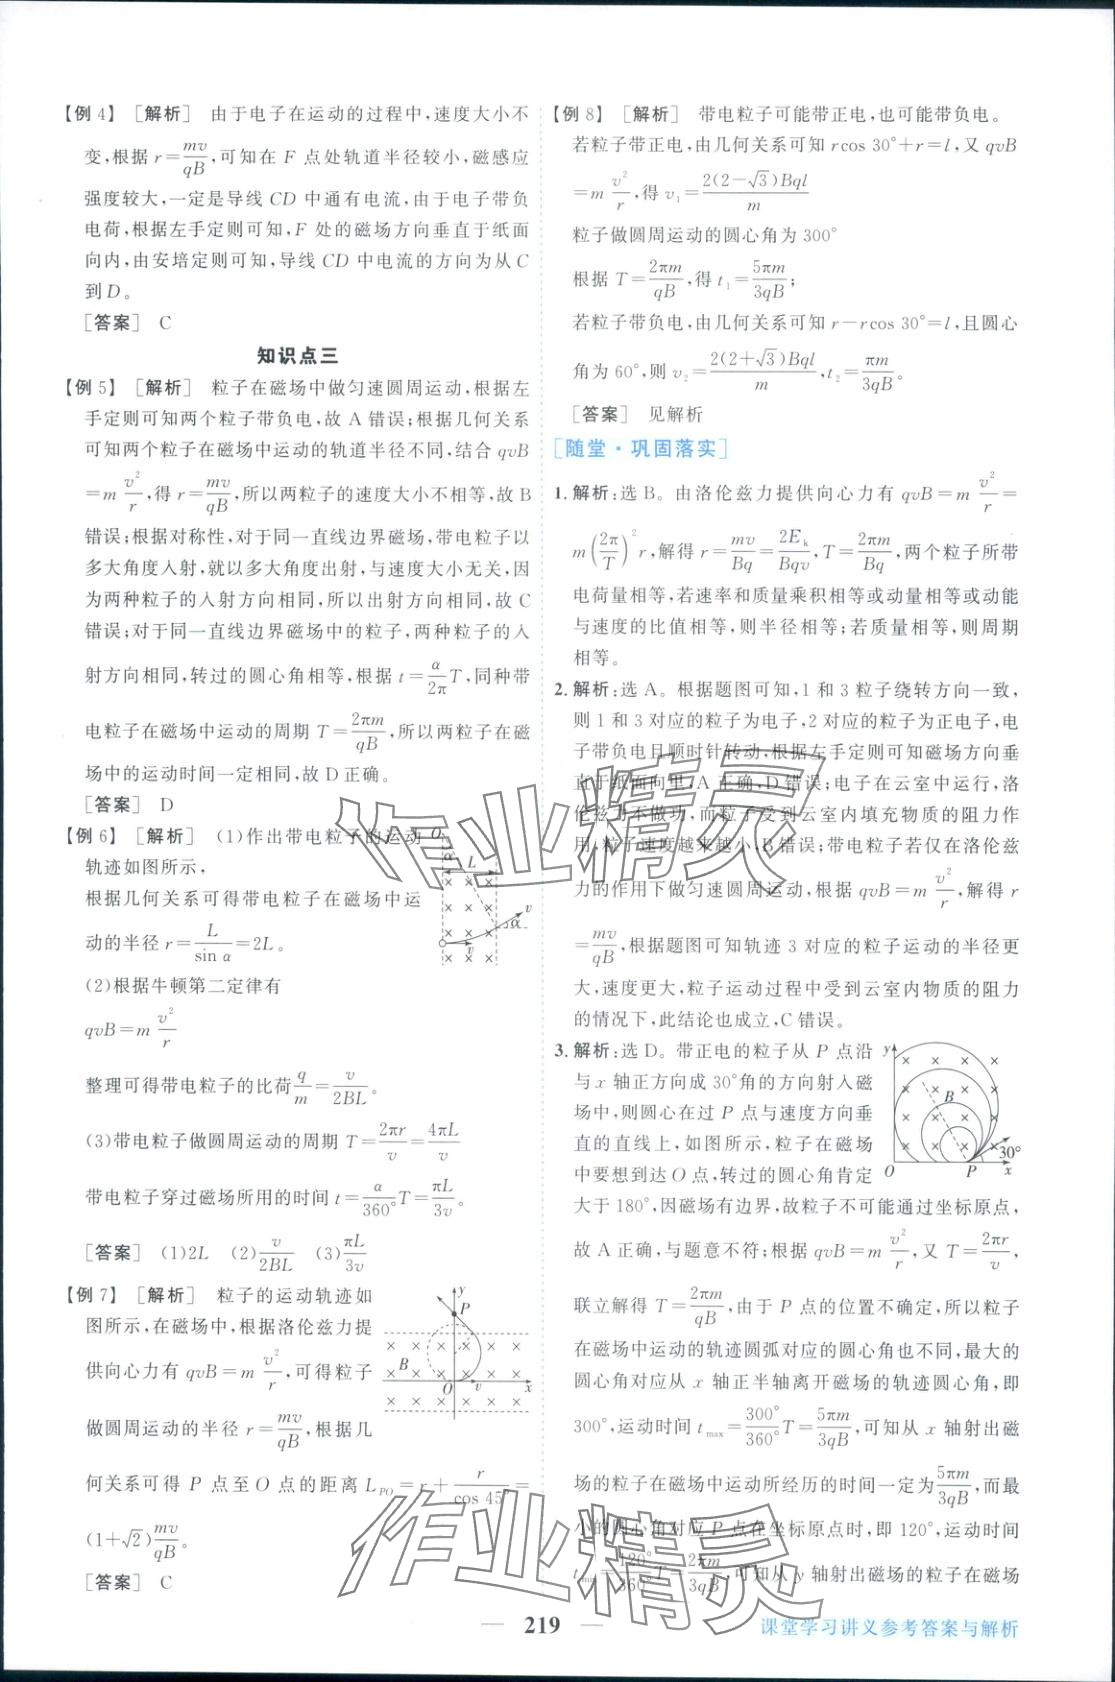 【例 4】 [解析] 由于电子在运动的过程中,速度大小不
变,根据 r=mv/qB,可知在 F 点处轨道半径较小,磁感应
强度较大,一定是导线 CD 中通有电流,由于电子带负
电荷,根据左手定则可知,F 处的磁场方向垂直于纸面
向内,由安培定则可知,导线 CD 中电流的方向为从C
到 D。
[答案] C
知识点三
【例 5】 [解析] 粒子在磁场中做匀速圆周运动,根据左
手定则可知两个粒子带负电,故 A 错误;根据几何关系
可知两个粒子在磁场中运动的轨道半径不同,结合 qvB
=m v²/r,得 r=mv/qB,所以两粒子的速度大小不相等,故 B
错误;根据对称性,对于同一直线边界磁场,带电粒子以
多大角度入射,就以多大角度出射,与速度大小无关,因
为两种粒子的入射方向相同,所以出射方向相同,故 C
错误;对于同一直线边界磁场中的粒子,两种粒子的入
射方向相同,转过的圆心角相等,根据 t=α/2π T,同种带
电粒子在磁场中运动的周期 T=2πm/qB,所以两粒子在磁
场中的运动时间一定相同,故 D正确。
[答案] D
【例 6】 [解析] (1)作出带电粒子的运动
轨迹如图所示,
根据几何关系可得带电粒子在磁场中运
动的半径 r=L/sin α=2L。
(2)根据牛顿第二定律有
qvB=m v²/r
整理可得带电粒子的比荷 q/m=v/2BL。
(3)带电粒子做圆周运动的周期 T=2πr/v=4πL/v
带电粒子穿过磁场所用的时间 t=α/360° T=πL/3v。
[答案] (1)2L (2)v/2BL (3)πL/3v
O
α
L
v
α
v
【例 7】 [解析] 粒子的运动轨迹如
图所示,在磁场中,根据洛伦兹力提
供向心力有 qvB=m v²/r,可得粒子
做圆周运动的半径 r=mv/qB,根据几
何关系可得 P 点至 O 点的距离 L_PO=r+r/cos 45°=
(1+√2)mv/qB。
[答案] C
y
P
B
O
v
x
【例 8】 [解析] 带电粒子可能带正电,也可能带负电。
若粒子带正电,由几何关系可知 rcos 30°+r=l,又 qvB
=m v²/r,得 v₁=2(2-√3)Bql/m
粒子做圆周运动的圆心角为 300°
根据 T=2πm/qB,得 t₁=5πm/3qB;
若粒子带负电,由几何关系可知 r-rcos 30°=l,且圆心
角为 60°,则 v₂=2(2+√3)Bql/m,t₂=πm/3qB。
[答案] 见解析
[随堂·巩固落实]
1. 解析:选 B。由洛伦兹力提供向心力有 qvB=m v²/r=
m(2π/T)²r,解得 r=mv/Bq=2Eₖ/Bqv,T=2πm/Bq,两个粒子所带
电荷量相等,若速率和质量乘积相等或动量相等或动能
与速度的比值相等,则半径相等;若质量相等,则周期
相等。
2. 解析:选 A。根据题图可知,1 和 3 粒子绕转方向一致,
则 1 和 3 对应的粒子为电子,2 对应的粒子为正电子,电
子带负电且顺时针转动,根据左手定则可知磁场方向垂
直于纸面向里,A 正确,D 错误;电子在云室中运行,洛
伦兹力不做功,而粒子受到云室内填充物质的阻力作
用,粒子速度越来越小,B错误;带电粒子若仅在洛伦兹
力的作用下做匀速圆周运动,根据 qvB=m v²/r,解得 r
=mv/qB,根据题图可知轨迹 3 对应的粒子运动的半径更
大,速度更大,粒子运动过程中受到云室内物质的阻力
的情况下,此结论也成立,C 错误。
3. 解析:选 D。带正电的粒子从 P 点沿
与 x 轴正方向成 30°角的方向射入磁
场中,则圆心在过 P 点与速度方向垂
直的直线上,如图所示,粒子在磁场
中要想到达 O 点,转过的圆心角肯定
大于 180°,因磁场有边界,故粒子不可能通过坐标原点,
故 A 正确,与题意不符;根据 qvB=m v²/r,又 T=2πr/v,
联立解得 T=2πm/qB,由于 P 点的位置不确定,所以粒子
在磁场中运动的轨迹圆弧对应的圆心角也不同,最大的
圆心角对应从 x 轴正半轴离开磁场的轨迹圆心角,即
300°,运动时间 t_max=300°/360° T=5πm/3qB,可知从 x 轴射出磁
场的粒子在磁场中运动所经历的时间一定为5πm/3qB,而最
小的圆心角对应 P 点在坐标原点时,即 120°,运动时间
t_min=120°/360° T=2πm/3qB,可知从 y 轴射出磁场的粒子在磁场
y
B
30°
O
P
x
作业精灵
作业精灵
219
课堂学习讲义参考答案与解析